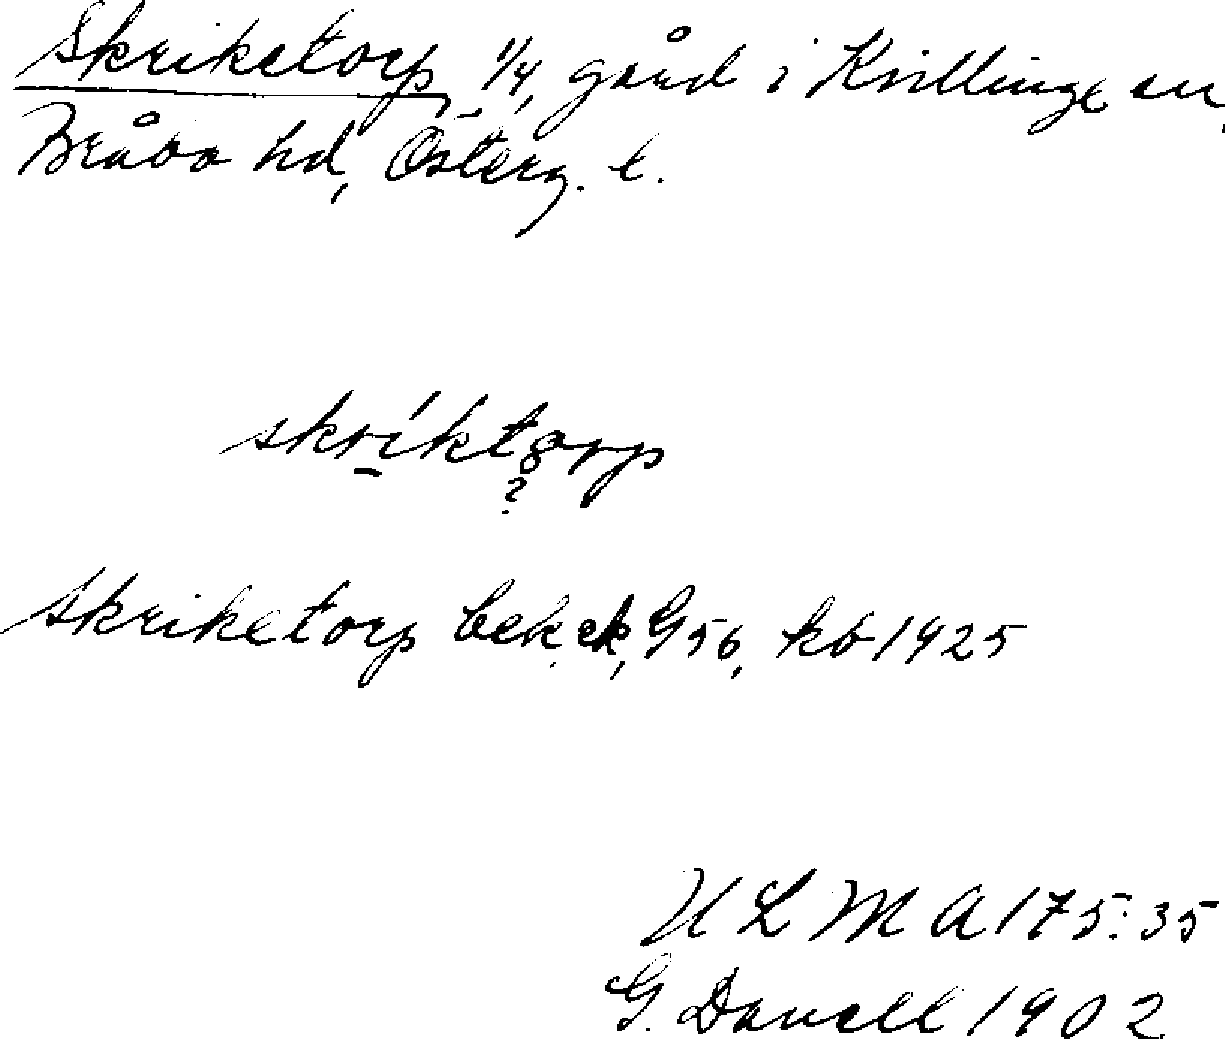 Skriketorp, 1/4, gård i Kvillinge sn,
Bråbo hd, Österg. l.
skríktorp
?
Skriketorp bek. ek, G 56, kb 1925
ULMA 175:35
G. Danell 1902